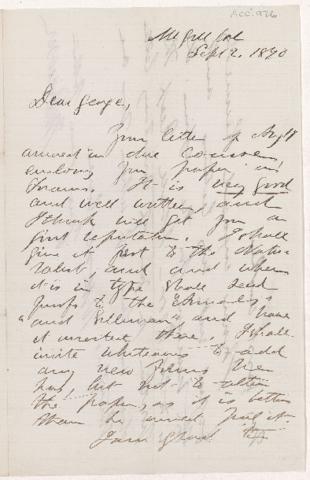 Acc. 926
McGill Col
Sept 2. 1870
Dear George,
Your letter of Augt 18
arrived in due course,
enclosing your paper in
Grains. It is very good
and well written, and
I think will get you a
first reputation. I shall
give it first to the Natu-
ralist, and and when
it is in type shall send
proofs to the "Annals"
"and Silliman" and have
it inserted there. I shall
invite Whiteaves to add
any new forms he
has, but not to alter
the paper, as it is better
than he could put it.
I am glad